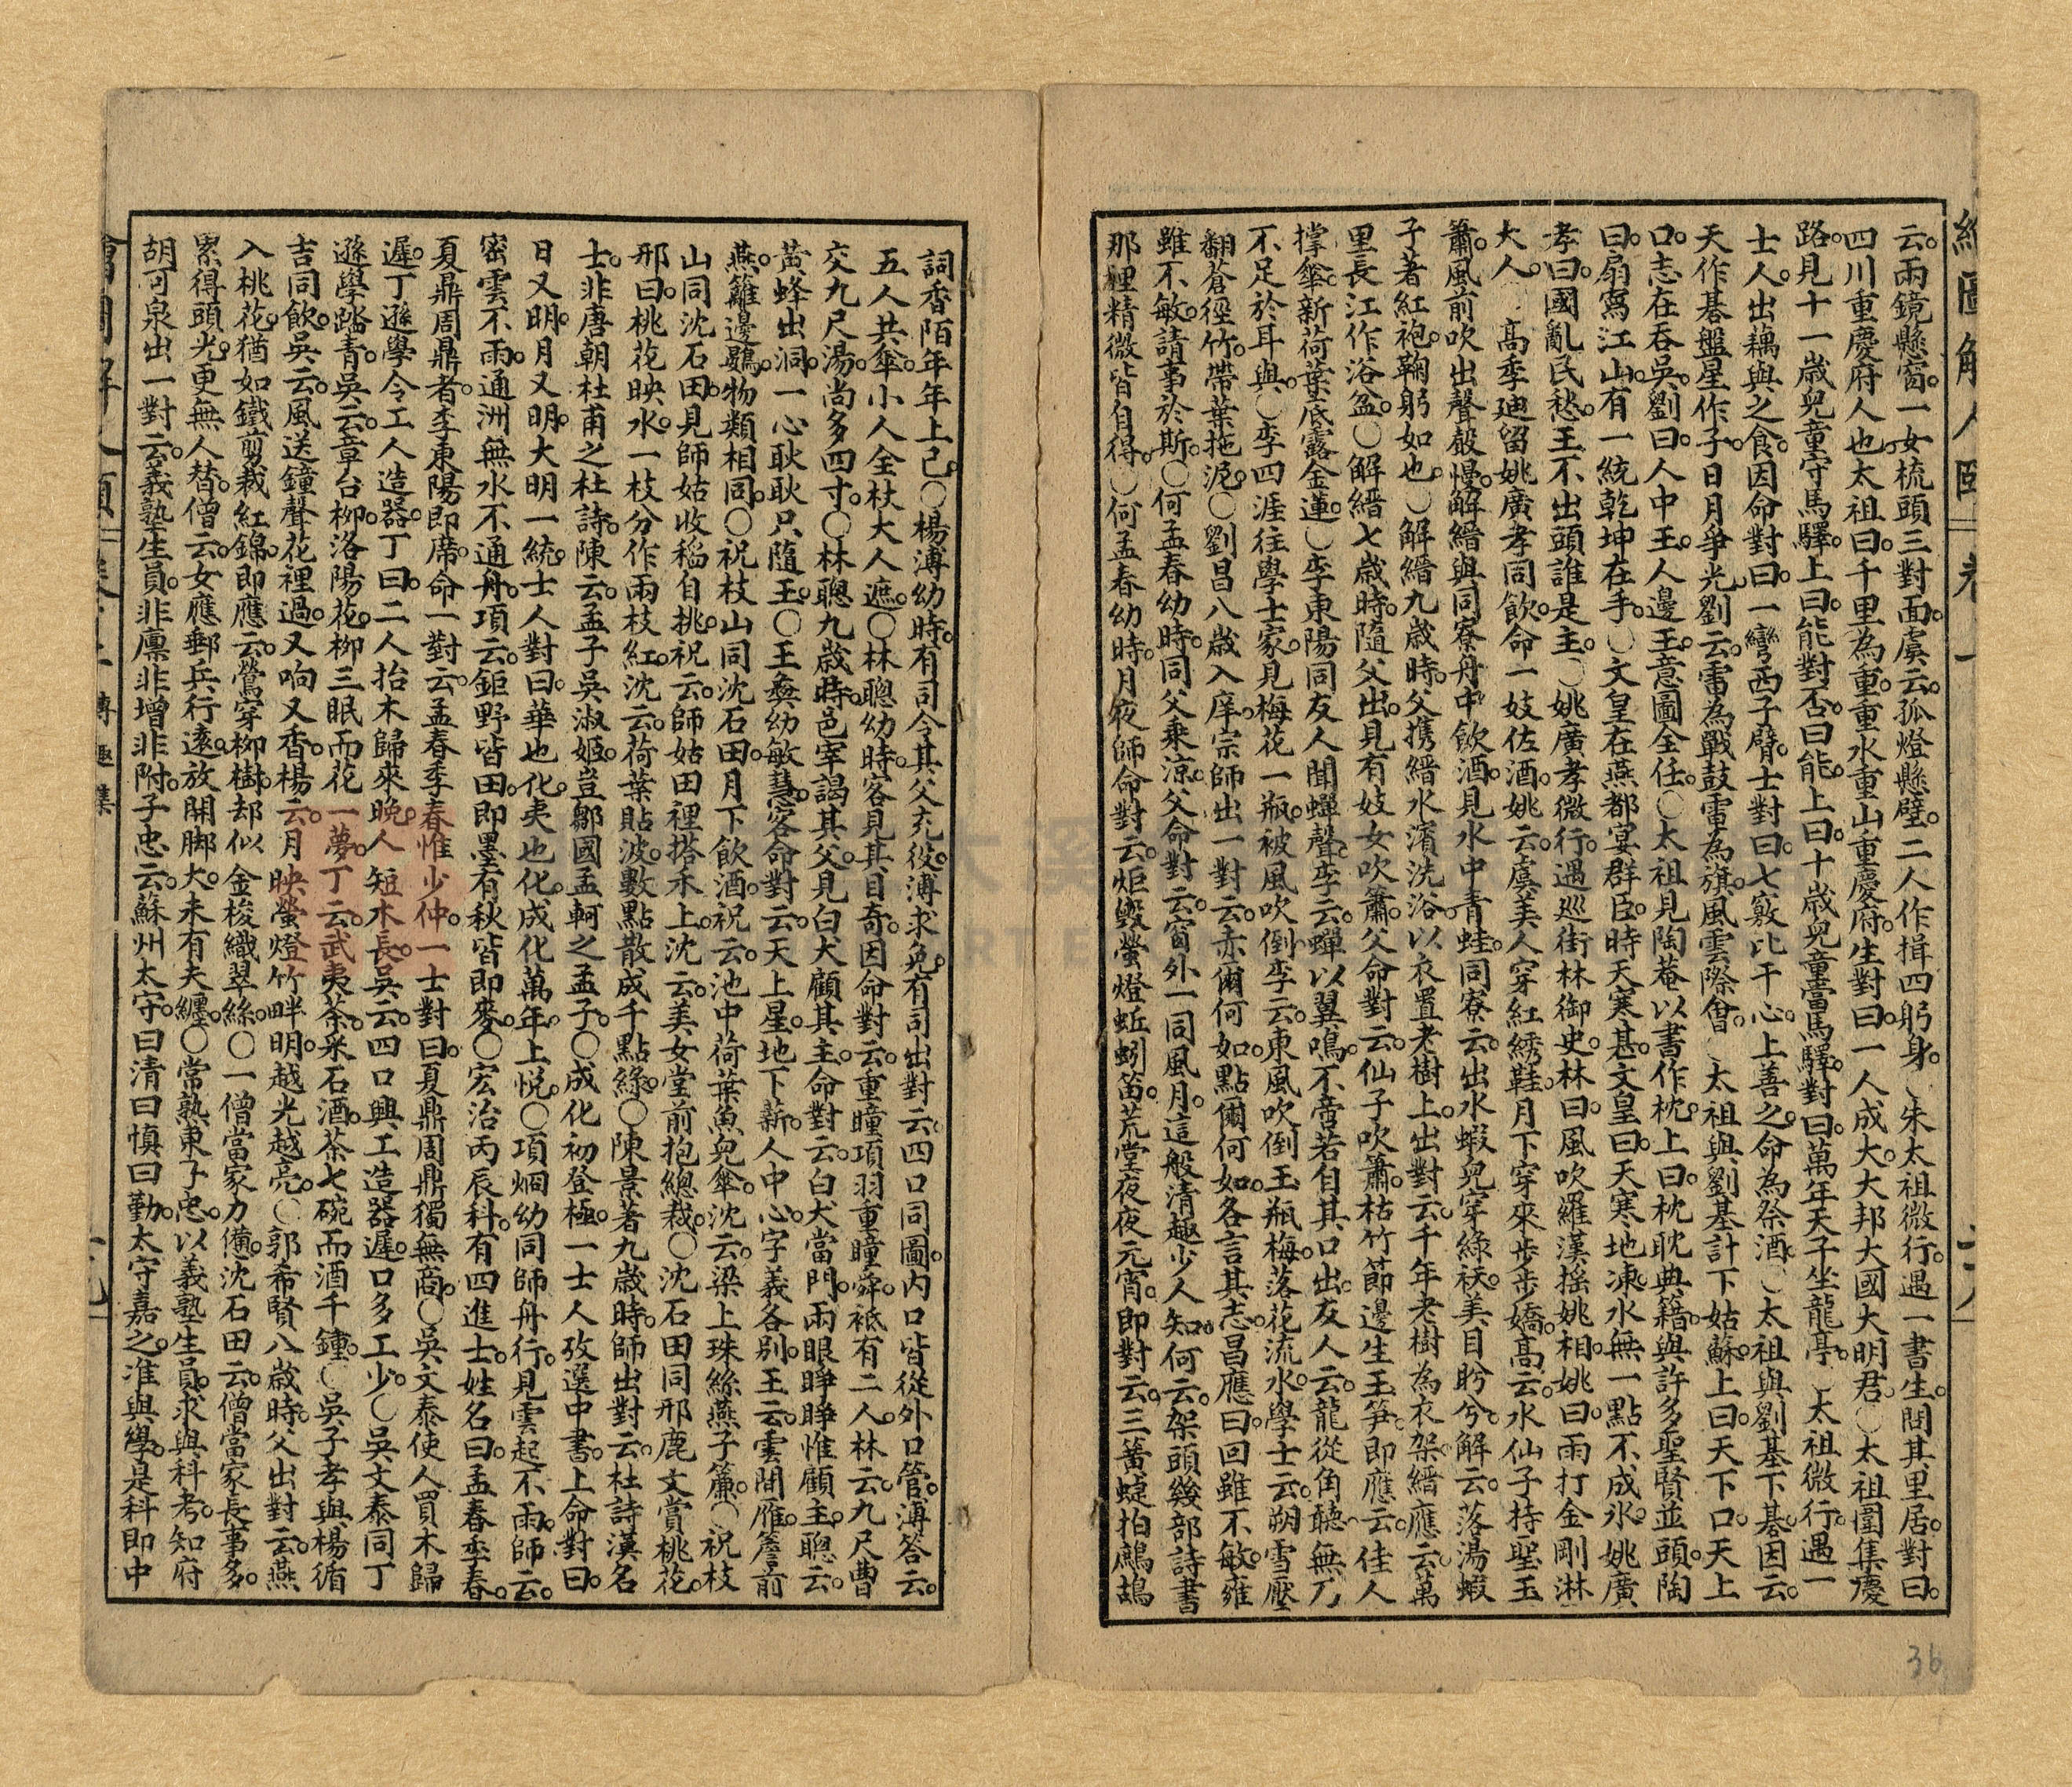 繪圖解人頤 卷一
云。兩鏡懸窗。一女梳頭三對面。虞云。孤燈懸壁。二人作揖四躬身。○朱太祖微行。遇一書生。問其里居。對曰。
四川重慶府人也。太祖曰。千里為重。重水重山重慶府。生對曰。一人成大。大邦大國大明君。○太祖圍集慶
路。見十一歲兒童守馬驛。上曰。能對否。曰能。上曰。十歲兒童當馬驛。對曰。萬年天子坐龍亭。○太祖微行。遇一
士人。出藕與之食。因命對曰。一彎西子臂。士對曰。七竅比干心。上善之。命為祭酒。○太祖與劉基下碁。因云。
天作碁盤星作子。日月爭光。劉云。雷為戰鼓電為旗。風雲際會。○太祖與劉基計下姑蘇。上曰。天下口。天上
口。志在吞吳。劉曰。人中王。人邊王。意圖全任。○太祖見陶菴以書作枕。上曰。枕耽典籍。與許多聖賢並頭。陶
曰。扇寫江山。有一統乾坤在手。○文皇在燕都宴群臣。時天寒甚。文皇曰。天寒地凍。水無一點不成冰。姚廣
孝曰。國亂民愁。王不出頭誰是主。○姚廣孝微行。遇巡街林御史。林曰。風吹羅漢搖。姚相。姚曰。雨打金剛淋
大人。○高季迪留姚廣孝同飲。命一妓佐酒。姚云。虞美人穿紅綉鞋。月下穿來步步嬌。高云。水仙子持堅玉
簫。風前吹出聲聲慢。解縉與同寮舟中飲酒。見水中青蛙。同寮云。出水蝦兒穿綠袄。美目盼兮。解云。落湯蝦
子著紅袍。鞠躬如也。○解縉九歲時。父携縉水濱洗浴。以衣置老樹上。出對云。千年老樹為衣架。縉應云。萬
里長江作浴盆。○解縉七歲時。隨父出。見有妓女吹簫。父命對云。仙子吹簫。枯竹節邊生玉笋。即應云。佳人
撑傘。新荷葉底露金蓮。○李東陽同友人聞蟬聲。李云。蟬以翼鳴。不啻若自其口出。友人云。龍從角聽。無乃
不足於耳與。○李四涯往學士家。見梅花一瓶。被風吹倒。李云。東風吹倒玉瓶梅。落花流水。學士云。朔雪壓
翻蒼徑竹。帶葉拖泥。○劉昌八歲入庠。宗師出一對云。赤爾何如。點爾何如。各言其志。昌應曰。回雖不敏。雍
雖不敏。請事於斯。○何孟春幼時。同父乘涼。父命對云。窗外一同風月。這般清趣少人知。何云。架頭幾部詩書
那裡精微皆自得。○何孟春幼時。月夜師命對云。炬毀螢燈蚯蚓笛。荒堂夜夜元宵。即對云。三簧蜨拍鷓鴣
詞。香陌年年上己。○楊溥幼時。有司令其父充役。溥求免。有司出對云。四口同圖。內口皆從外口管。溥答云。
五人共傘。小人全杖大人遮。○林聰幼時。客見其目奇。因命對云。重瞳項羽重瞳舜。袛有二人。林云。九尺曹
交九尺湯。尚多四寸。○林聰九歲時。邑宰謁其父。見白犬顧其主。命對云。白犬當門。兩眼睜睜惟顧主。聰云。
黃蜂出洞。一心耿耿只隨王。○王彝幼敏慧。客命對云。天上星。地下薪。人中心。字義各別。王云。雲間雁。簷前
燕。籬邊鷃。物類相同。○祝枝山同沈石田。月下飲酒。祝云。池中荷葉魚兒傘。沈云。梁上珠絲燕子簾。○祝枝
山同沈石田。見師姑收稻自挑。祝云。師姑田裡搭禾上。沈云。美女堂前抱總裁。○沈石田同邢鹿文賞桃花。
邢曰。桃花映水。一枝分作兩枝紅。沈云。荷葉貼波。數點散成千點綠。○陳景著九歲時。師出對云。杜詩漢名
士。非唐朝杜甫之杜詩。陳云。孟子吳淑姬。豈鄒國孟軻之孟子。○成化初登極。一士人攷選中書。上命對曰。
日又明。月又明。大明一統。士人對曰。華也化。夷也化。成化萬年。上悅。○項烱幼同師舟行。見雲起不雨。師云。
密雲不雨。通洲無水不通舟。項云。鉅野皆田。即墨有秋皆即麥。○宏治丙辰科。有四進士。姓名曰。孟春季春。
夏鼎周鼎者。李東陽即席命一對云。孟春季春惟少仲。一士對曰。夏鼎周鼎獨無商。○吳文泰使人買木歸
遲。丁遜學令工人造器。丁曰。二人抬木歸來晚。人短木長。吳云。四口興工造器遲。口多工少。○吳文泰同丁
遜學踏青。吳云。章台柳。洛陽花。柳三眠而花一夢。丁云。武夷茶。采石酒。茶七碗而酒千鍾。○吳子孝與楊循
吉同飲。吳云。風送鐘聲花裡過。又响又香。楊云。月映螢燈竹畔明。越光越亮。○郭希賢八歲時。父出對云。燕
入桃花。猶如鐵剪裁紅錦。即應云。鶯穿柳樹。却似金梭織翠絲。○一僧當家力憊。沈石田云。僧當家長事多。
累得頭光更無人替。僧云。女應郵兵行遠。放開脚大。未有夫纏。○常熟東子忠。以義塾生員。求與科考。知府
胡可泉出一對云。義塾生員。非廩非增非附。子忠云。蘇州太守。曰清曰慎曰勤。太守嘉之。准與學。是科即中
36